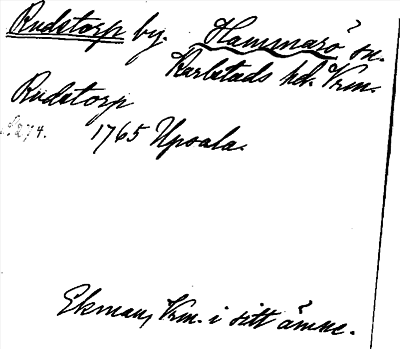 Rudstorp by. Hammarö sn.
Karlstads hd. Vrm.
Rudstorp
s. 274. 1765 Upsala.
Ekman, Vrm. i sitt ämne.